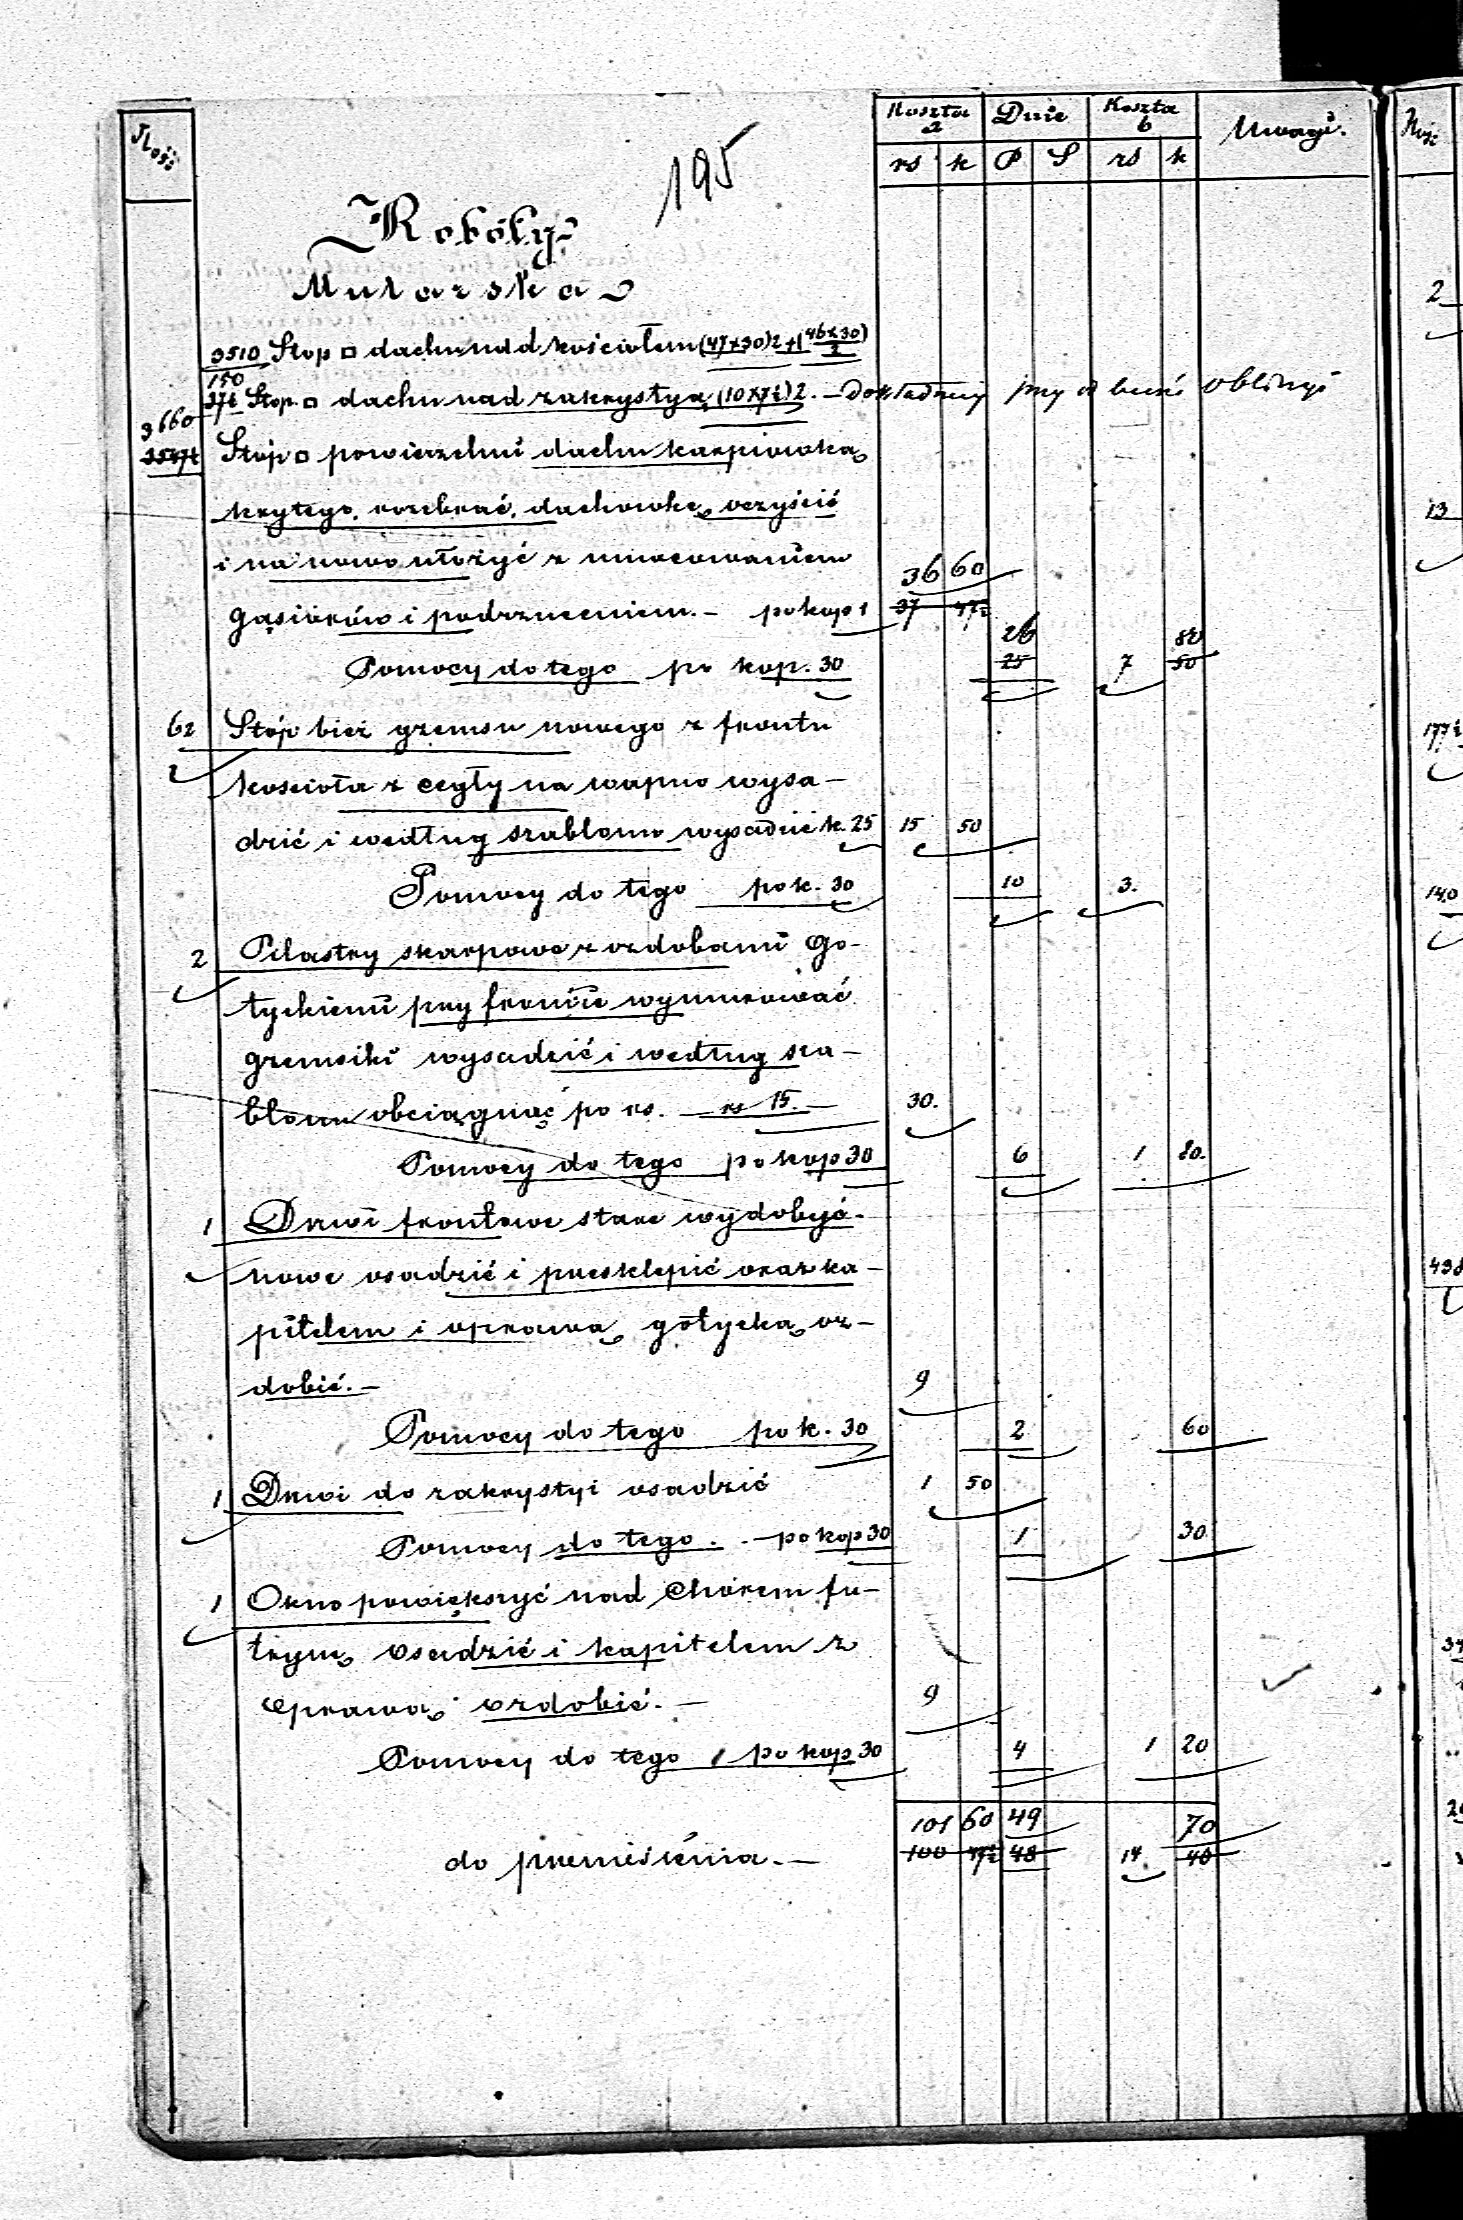 Ilość
Koszta a | Dnie | Koszta b | Uwagi.
rs | k | P | S | rs | k
195
Roboty
Mularska
3510 Stop □ dachu nad kościołem (47x30)2+(46x30)/2
150
37½ Stop. □ dachu nad zakrystyą (10x7½)2. – Dokładniej przy obliczyć
3660
3547½ Stóp □ powierzchni dachu karpiówką
krytego, rozebrać, dachówkę oczyścić
i na nowo ułożyć z umocowaniem 36 60
gąsiorów i podrzuceniem. – po kop 1 37 47½
26 80
Pomocy do tego po kop. 30 25 7 50
62 Stóp bież gzemsu nowego z frontu
kościoła z cegły na wapno wysa–
dzić i według szablonu wysadzić k. 25 15 50
Pomocy do tego po k. 30 10 3.
2 Pilastry skarpowe z ozdobami go–
tyckiemi przy froncie wymurować
gzemsiki wysadzić i według sza–
blonu obciągnąć po rs. – rs 15. – 30.
Pomocy do tego po kop 30 6 1 80.
1 Drzwi frontowe stare wydobyć.
nowe osadzić i przesklepić oraz ka–
pitelem i oprawą gotycką oz–
dobić. – 9
Pomocy do tego po k. 30 2 60
1 Drzwi do zakrystyi osadzić 1 50
Pomocy do tego. – po kop 30 1 30
1 Okno powiększyć nad Chórem fu–
trynę osadzić i kapitelem z
oprawą ozdobić. – 9
Pomocy do tego po kop 30 4 1 20
101 60 49 70
do przeniesienia. – 100 47½ 48 14 40
Ilość
2
13
177½
140